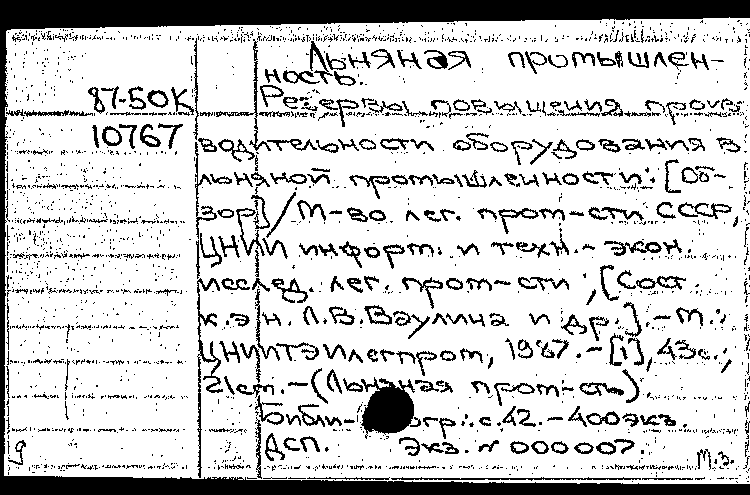 Льняная промышлен-
ность.
87-50К
Резервы повышения произ-
10767
водительности оборудования в
льняной промышленности: [Об-
зор] / М-во лег. пром-сти СССР,
ЦНИИ информ. и техн.-экон.
исслед. лег. пром-сти ; [Сост.
к.э.н. Л.В.Ваулина и др.].-М.:
ЦНИИТЭИлегпром, 1987.-[1], 43с.;
21см.-(Льняная пром-сть)
Библи- огр.: с.42.-400экз.
ДСП. Экз. № 000007.
9
М.З.